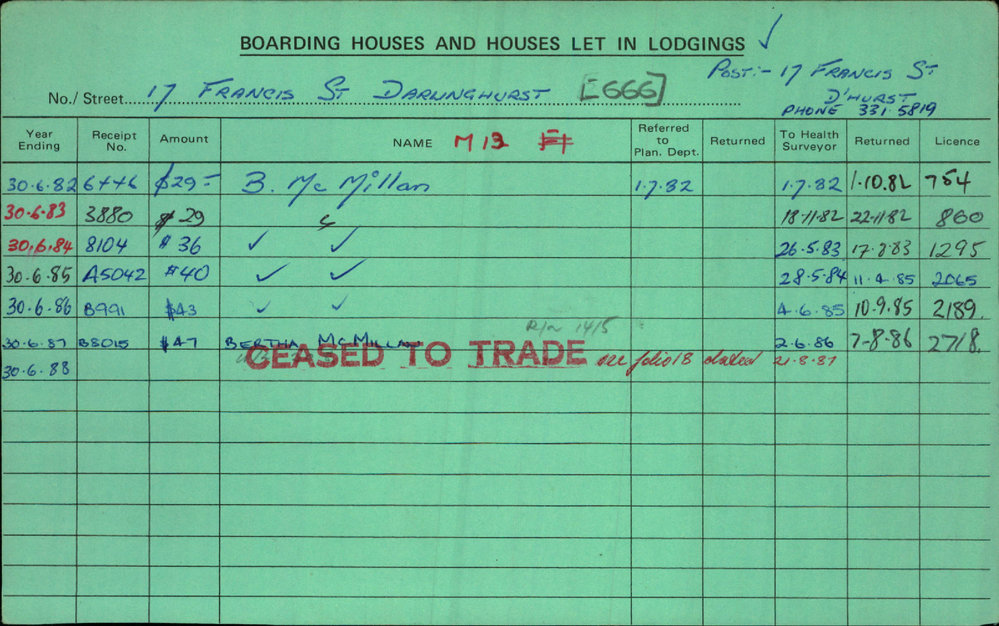 BOARDING HOUSES AND HOUSES LET IN LODGINGS ✓
POST:- 17 FRANCIS ST
D'HURST
PHONE 331.5819
No./Street 17 FRANCIS ST DARLINGHURST [E666]
Year Ending Receipt No. Amount NAME M 13 Referred to Plan. Dept. Returned To Health Surveyor Returned Licence
30.6.82 6446 $29- B. McMillan 1.7.82 1.7.82 1.10.82 754
30.6.83 3880 $29 18.11.82 22.11.82 860
30.6.84 8104 $36 ✓ ✓ 26.5.83 17.8.83 1295
30.6.85 A5042 $40 ✓ ✓ 28.5.84 11.4.85 2065
30.6.86 B991 $43 ✓ ✓ 4.6.85 10.9.85 2189.
R/N 1415
30.6.87 B8015 $47 BERTHA MCMILLAN 2.6.86 7-8-86 2718.
30.6.88 CEASED TO TRADE see folio 18 dated 21.8.87